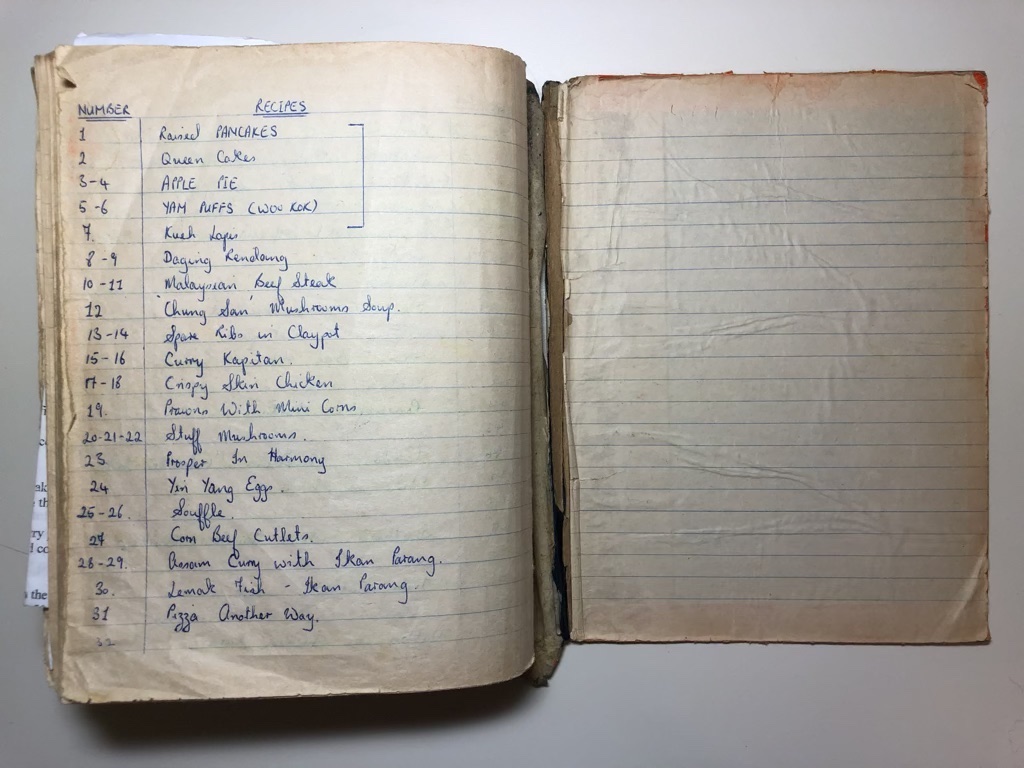 NUMBER RECIPES
1 Raised PANCAKES
2 Queen Cakes
3-4 APPLE PIE
5-6 YAM PUFFS (WOO KOK)
7. Kueh Lapis
8-9 Daging Rendang
10-11 Malaysian Beef Steak
12 'Chung San' Mushrooms Soup.
13-14 Spare Ribs in Claypot
15-16 Curry Kapitan.
17-18 Crispy Skin Chicken
19. Prawns With Mini Corns.
20-21-22 Stuff Mushrooms.
23 Prosper In Harmony
24 Yin Yang Eggs.
25-26. Souffle.
27 Corn Beef Cutlets.
28-29. Assam Curry with Ikan Parang.
30. Lemak Fish - Ikan Parang.
31 Pizza Another Way.
32